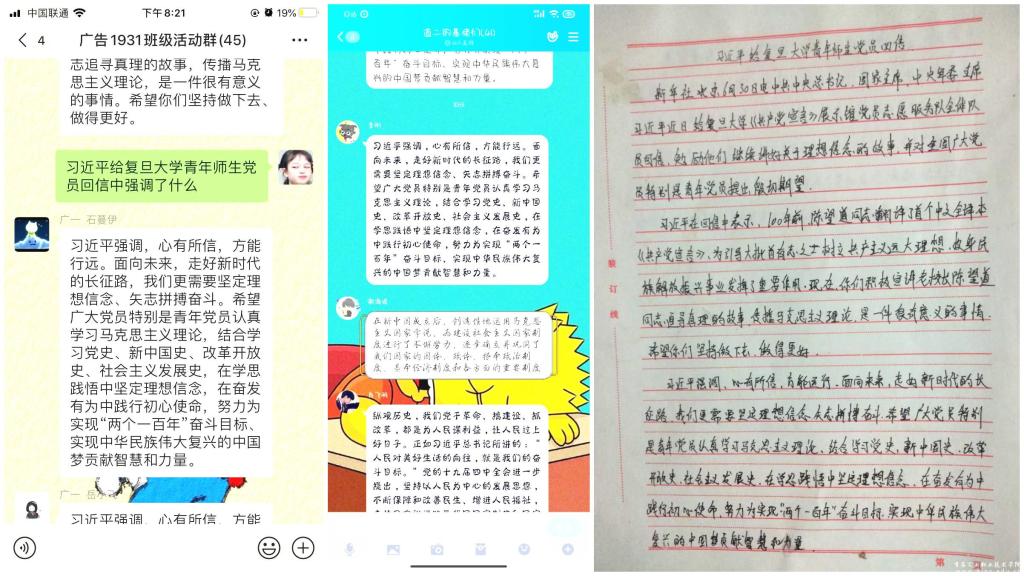 中国联通
下午8:21
19%
4
广告1931班级活动群(45)
志追寻真理的故事，传播马克
思主义理论，是一件很有意义
的事情。希望你们坚持做下去、
做得更好。
习近平给复旦大学青年师生党
员回信中强调了什么
广一 石蔓伊
习近平强调，心有所信，方能
行远。面向未来，走好新时代
的长征路，我们更需要坚定理
想信念、矢志拼搏奋斗。希望
广大党员特别是青年党员认真
学习马克思主义理论，结合学
习党史、新中国史、改革开放
史、社会主义发展史，在学思
践悟中坚定理想信念，在奋发
有为中践行初心使命，努力为
实现“两个一百年”奋斗目标、
实现中华民族伟大复兴的中国
梦贡献智慧和力量。
习近平强调，心有所信，方能
百年”奋斗目标、实现中华民族伟大复
兴的中国梦贡献智慧和力量。
习近平强调，心有所信，方能行远。面
向未来，走好新时代的长征路，我们更
需要坚定理想信念、矢志拼搏奋斗。希
望广大党员特别是青年党员认真学习马
克思主义理论，结合学习党史、新中国
史、改革开放史、社会主义发展史，在
学思践悟中坚定理想信念，在奋发有为
中践行初心使命，努力为实现“两个一
百年”奋斗目标、实现中华民族伟大复
兴的中国梦贡献智慧和力量。
在新中国成立后，创造性地运用马克思
主义国家学说，为建设社会主义国家制
度进行了不懈努力，逐步确立并巩固了
我们国家的国体、政体、根本政治制
度、基本经济制度和各方面的重要制度
纵观历史，我们党干革命、搞建设、抓
改革，都是为人民谋利益，让人民过上
好日子。正如习近平总书记所讲的：“
人民对美好生活的向往，就是我们的奋
斗目标。”党的十九届四中全会进一步
提出，坚持以人民为中心的发展思想，
不断保障和改善民生、增进人民福祉，
习近平给复旦大学青年师生党员回信
新华社北京6月30日电中共中央总书记、国家主席、中央军委主席
习近平近日给复旦大学《共产党宣言》展示馆党员志愿服务队全体队
员回信，勉励他们继续讲好关于理想信念的故事，并对全国广大党
员特别是青年党员提出殷切期望。
习近平在回信中表示，100年前，陈望道同志翻译了首个中文全译本
《共产党宣言》，为引导大批有志之士树立共产主义远大理想、投身民
族解放振兴事业发挥了重要作用。现在，你们积极宣讲老校长陈望道
同志追寻真理的故事，传播马克思主义理论，是一件很有意义的事情。
希望你们坚持做下去、做得更好。
习近平强调，心有所信，方能远行。面向未来，走好新时代的长
征路，我们更需要坚定理想信念、矢志拼搏奋斗。希望广大党员特别
是青年党员认真学习马克思主义理论，结合学习党史、新中国史、改革
开放史、社会主义发展史，在学思践悟中坚定理想信念，在奋发有为中
践行初心使命，努力为实现“两个一百年”奋斗目标、实现中华民族伟大
复兴的中国梦贡献智慧和力量。
装
订
线
第